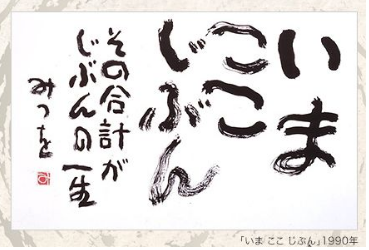 いま
ここ
じぶん
その合計が
じぶんの一生
みつを
「いま ここ じぶん」1990年